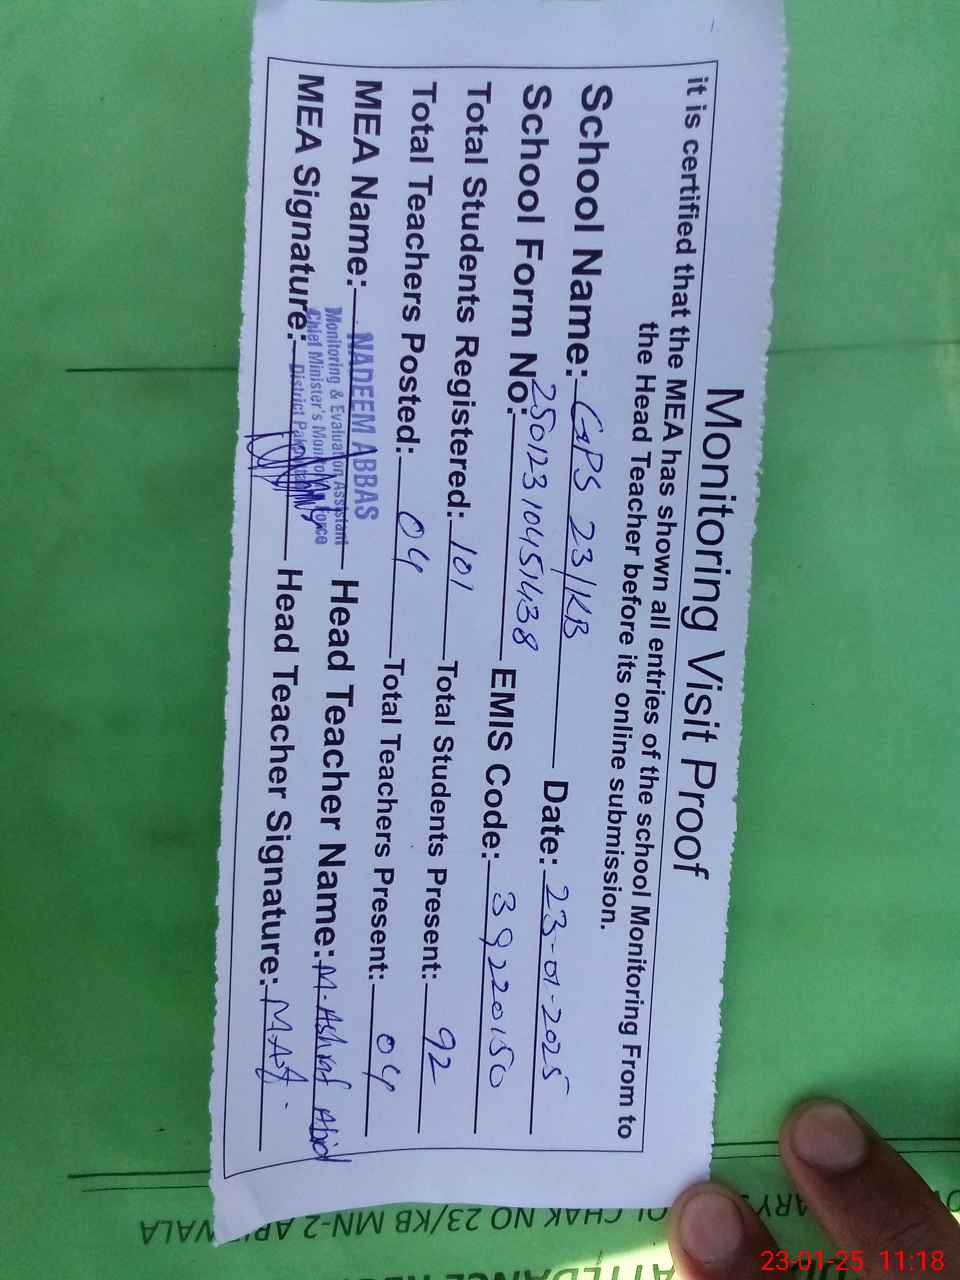 Monitoring Visit Proof
it is certified that the MEA has shown all entries of the school Monitoring From to
the Head Teacher before its online submission.
School Name: GPS 23/KB Date: 23-01-2025
School Form No: 25012310451438 EMIS Code: 39220150
Total Students Registered: 101 Total Students Present: 92
Total Teachers Posted: 04 Total Teachers Present: 04
MEA Name: NADEEM ABBAS Head Teacher Name: M. Ashraf Abid
Monitoring & Evaluation Assistant
Chief Minister's Monitoring Force
District Pakpattan
MEA Signature: Head Teacher Signature: M. Ash
CHAK NO 23/KB MN-2 WALA
23-01-25 11:18